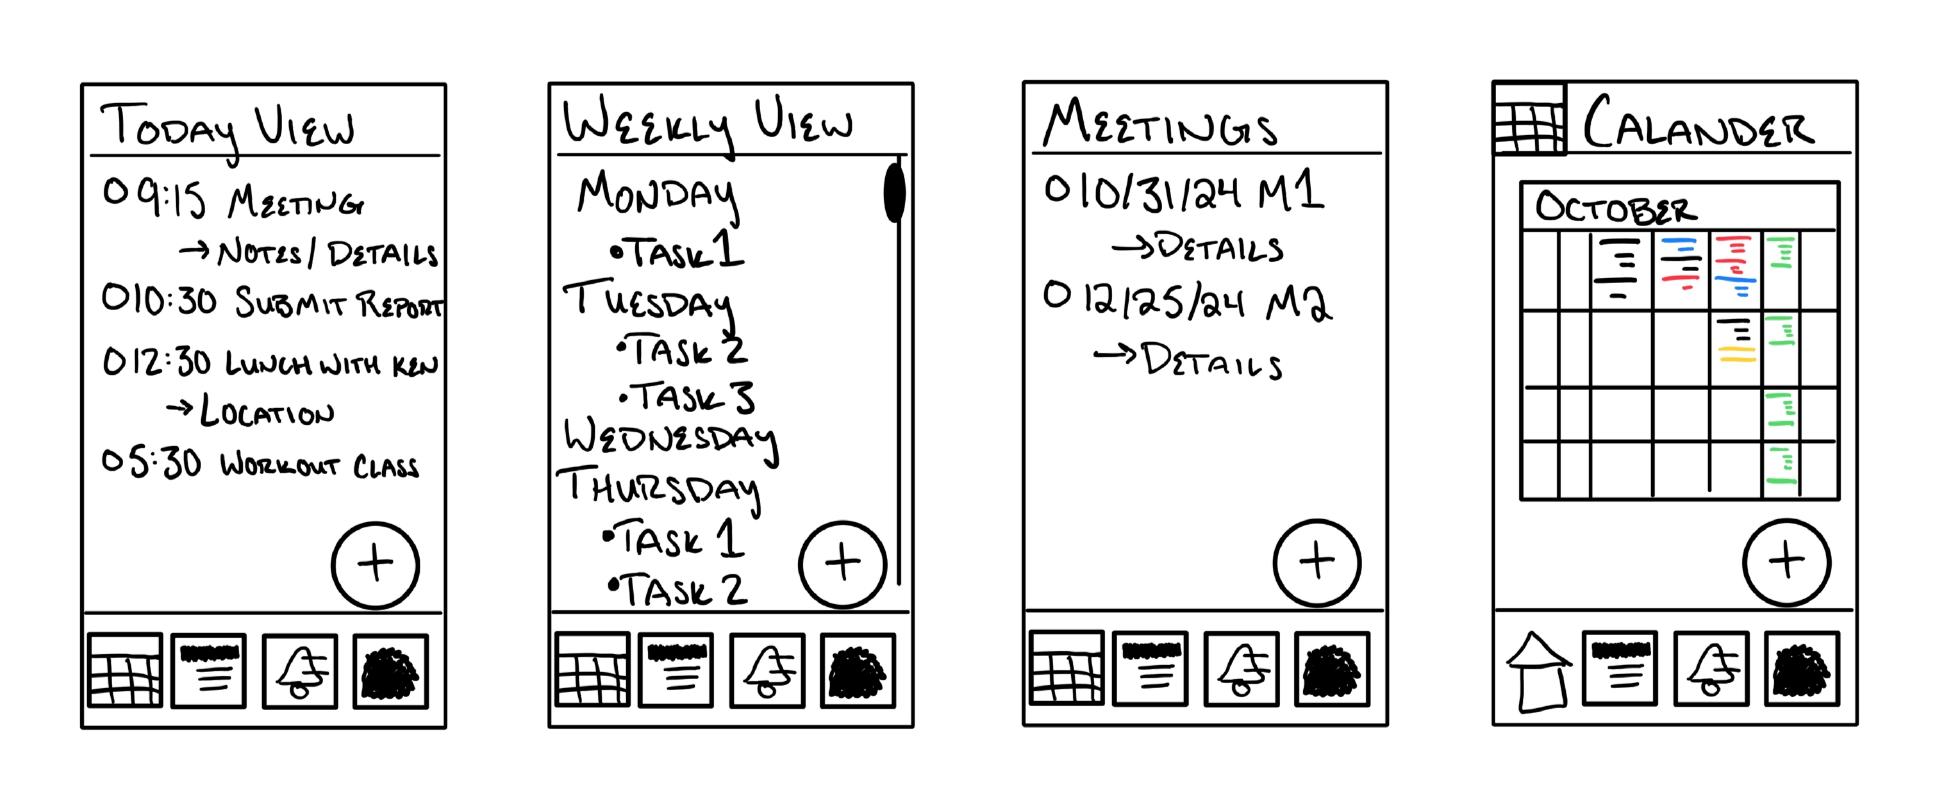 TODAY VIEW
9:15 MEETING
→ NOTES/DETAILS
10:30 SUBMIT REPORT
12:30 LUNCH WITH KEN
→ LOCATION
5:30 WORKOUT CLASS
+
WEEKLY VIEW
MONDAY
•TASK 1
TUESDAY
•TASK 2
•TASK 3
WEDNESDAY
THURSDAY
•TASK 1
•TASK 2
+
MEETINGS
10/31/24 M1
→DETAILS
12/25/24 M2
→DETAILS
+
CALANDER
OCTOBER
+